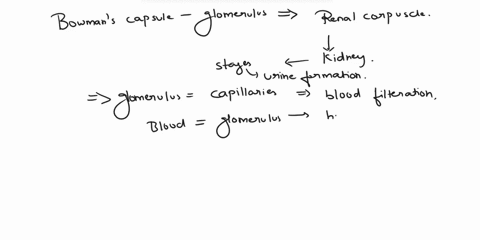 Bowman's capsule - glomerulus ⇒ Renal corpuscle.
↓
stages ← Kidney.
↳ urine formation.
⇒ glomerulus = capillaries ⇒ blood filteration.
Blood = glomerulus → h